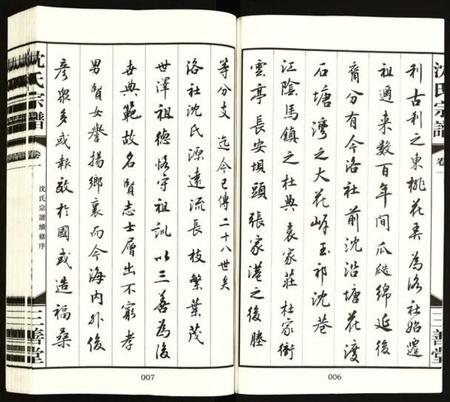 沈氏宗譜
卷一
三善堂
利古利之東桃花美為洛社始遷
祖通来數百年間瓜瓞綿延後
裔分有今洛社前沈沿塘花渡
石塘灣之大花㟁玉祁沈巷
江陰馬鎮之杜典袁家莊杜家衖
雲亭長安垻頭張家港之後塍
006
等分支迄今已傳二十八世矣
洛社沈氏源遠流長枝繁葉茂
世澤祖德恪守祖訓以三善為後
垂典範故名賢志士層出不窮孝
男賢女譽揚鄉裏而今海内外後
彦衆多或報效於國或造福桑
007
沈氏宗譜
卷一
沈氏宗譜續修序
三善堂